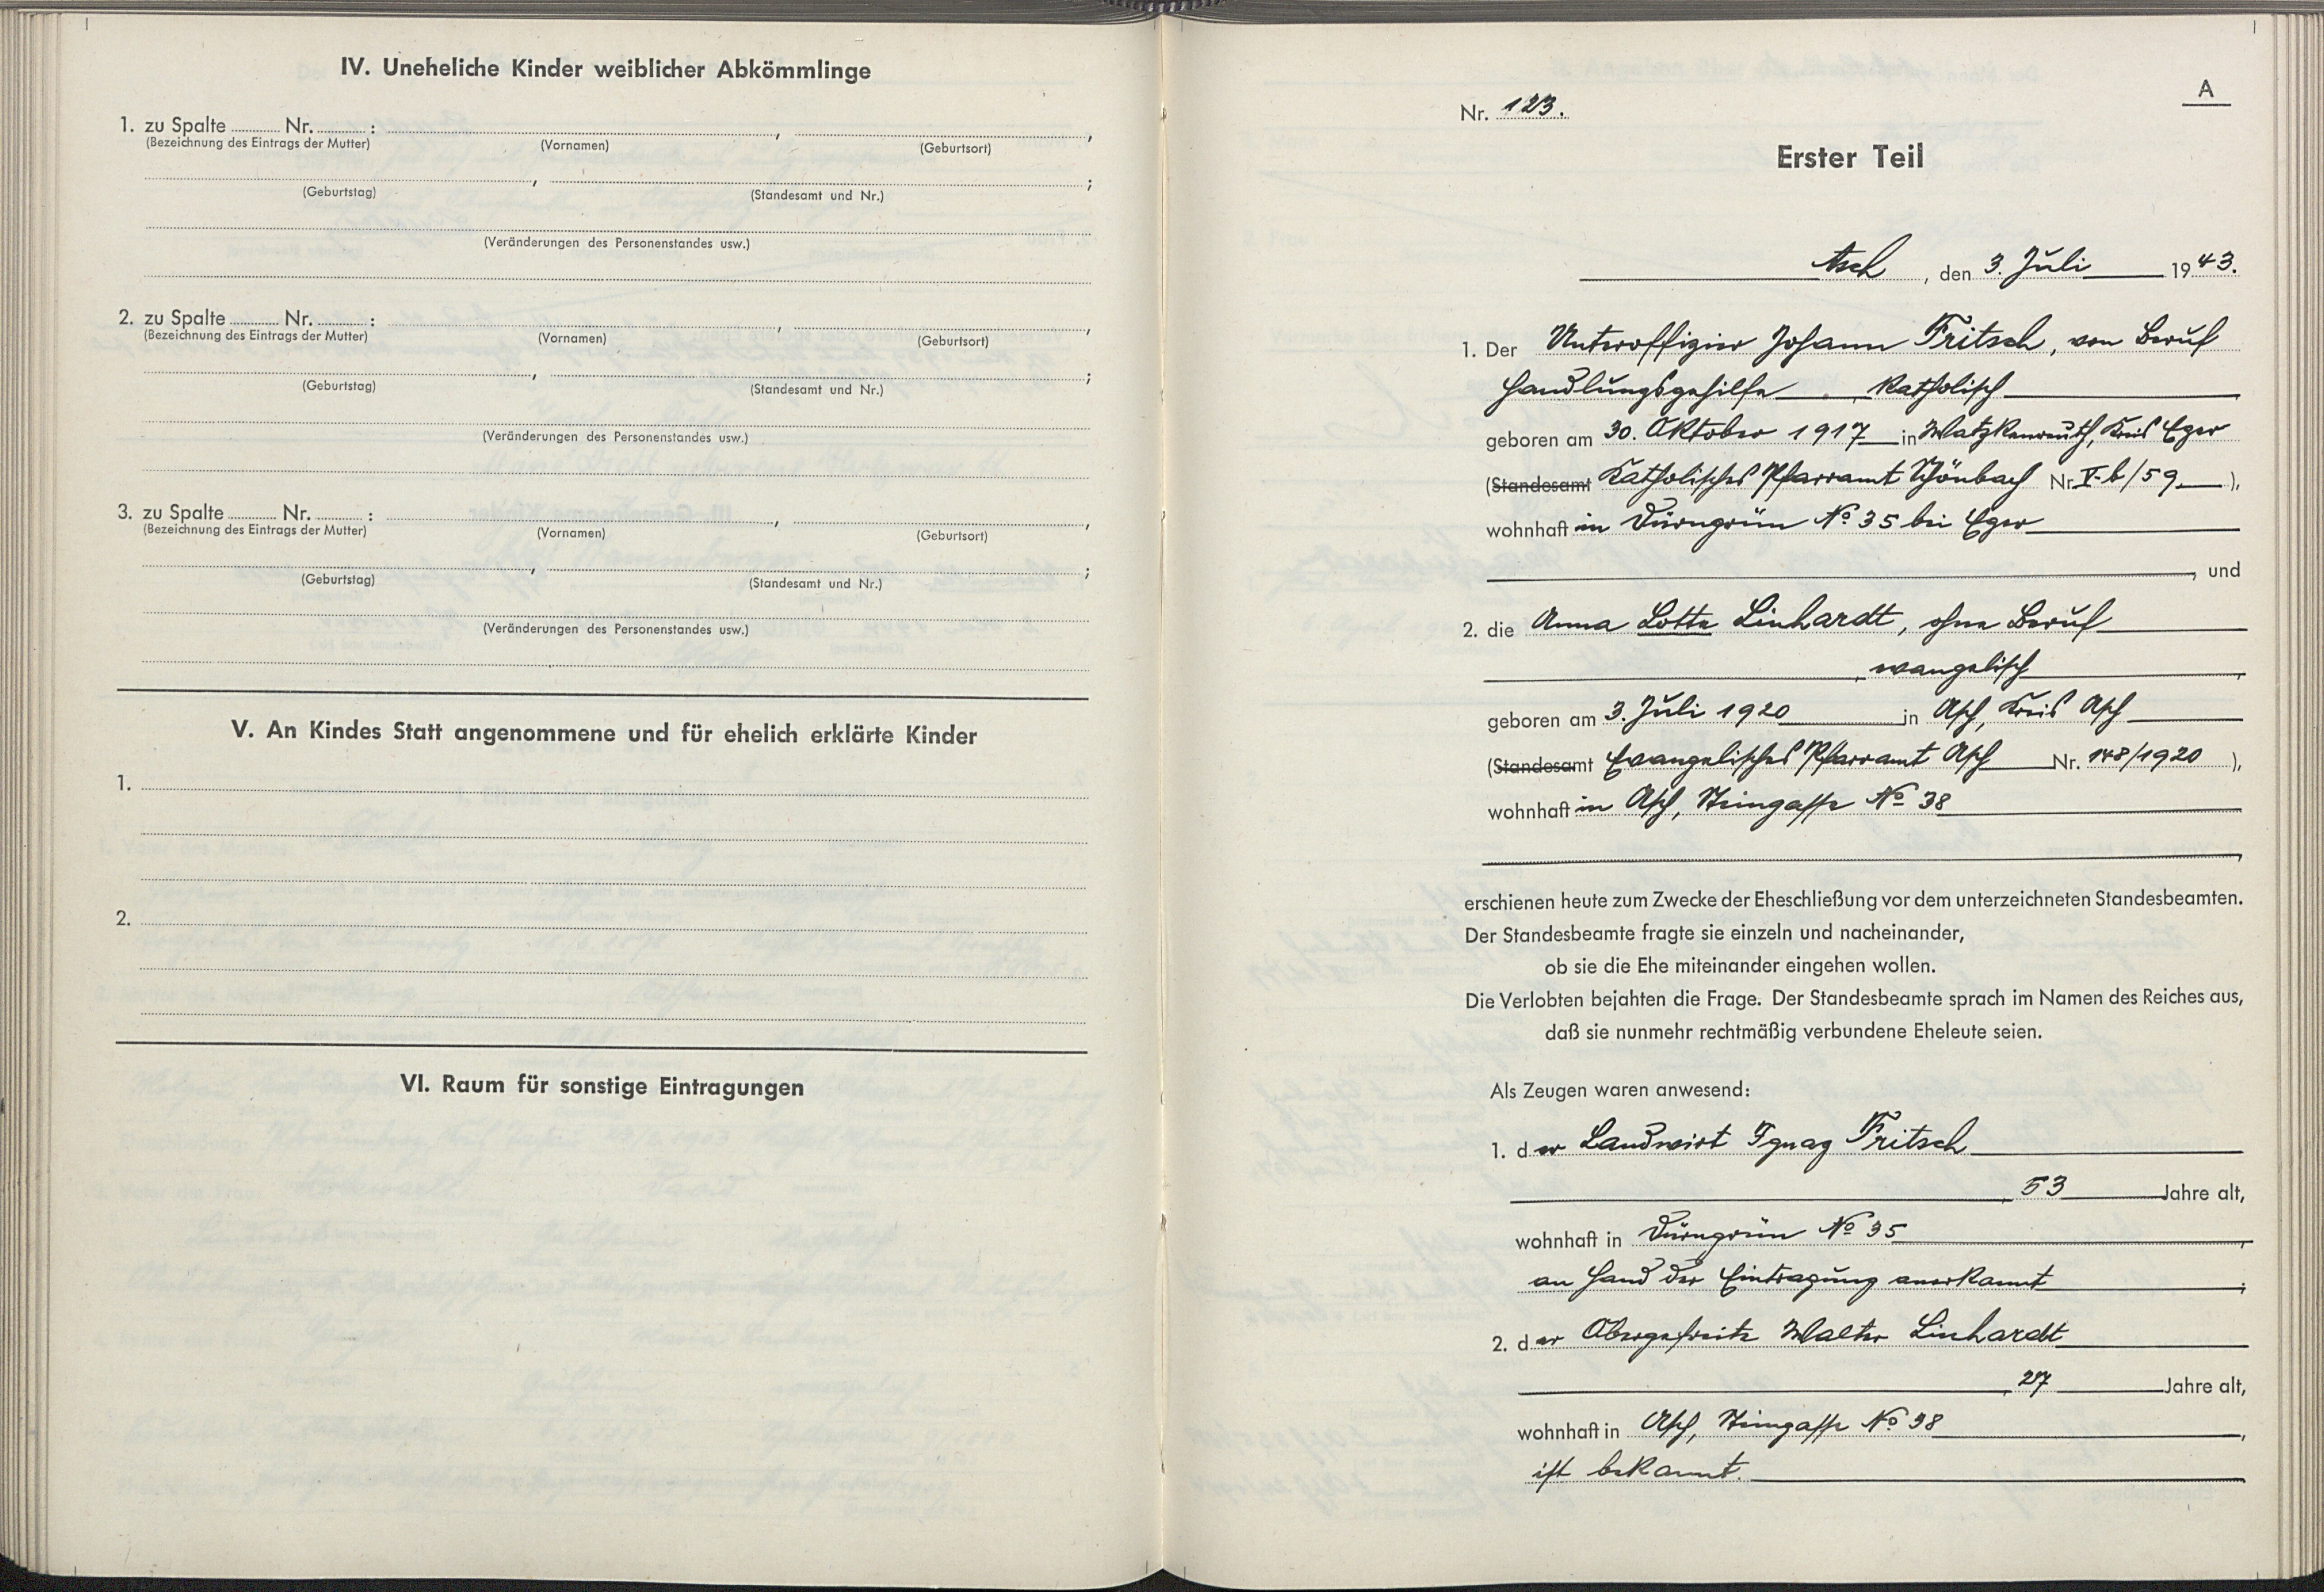 IV. Uneheliche Kinder weiblicher Abkömmlinge
1. zu Spalte ........ Nr. ........ : ........ , ........ ,
(Bezeichnung des Eintrags der Mutter) (Vornamen) (Geburtsort)
........ , ........ ;
(Geburtstag) (Standesamt und Nr.)
(Veränderungen des Personenstandes usw.)
2. zu Spalte ........ Nr. ........ : ........ , ........ ,
(Bezeichnung des Eintrags der Mutter) (Vornamen) (Geburtsort)
........ , ........ ;
(Geburtstag) (Standesamt und Nr.)
(Veränderungen des Personenstandes usw.)
3. zu Spalte ........ Nr. ........ : ........ , ........ ,
(Bezeichnung des Eintrags der Mutter) (Vornamen) (Geburtsort)
........ , ........ ;
(Geburtstag) (Standesamt und Nr.)
(Veränderungen des Personenstandes usw.)
V. An Kindes Statt angenommene und für ehelich erklärte Kinder
1.
2.
VI. Raum für sonstige Eintragungen
A
Nr. 123.
Erster Teil
Asch, den 3. Juli 1943.
1. Der Unteroffizier Johann Fritsch, von Beruf
Handlungsgehilfe, katholisch,
geboren am 30. Oktober 1917 in Watzkenreuth, Kreis Eger
(Standesamt Katholisches Pfarramt Schönbach Nr. V-b/59),
wohnhaft in Dürngrün No 35 bei Eger
, und
2. die Anna Lotte Linhardt, ohne Beruf
, evangelisch,
geboren am 3. Juli 1920 in Asch, Kreis Asch
(Standesamt Evangelisches Pfarramt Asch Nr. 148/1920),
wohnhaft in Asch, Steingasse No 38
,
erschienen heute zum Zwecke der Eheschließung vor dem unterzeichneten Standesbeamten.
Der Standesbeamte fragte sie einzeln und nacheinander,
ob sie die Ehe miteinander eingehen wollen.
Die Verlobten bejahten die Frage. Der Standesbeamte sprach im Namen des Reiches aus,
daß sie nunmehr rechtmäßig verbundene Eheleute seien.
Als Zeugen waren anwesend:
1. der Landwirt Ignaz Fritsch
, 53 Jahre alt,
wohnhaft in Dürngrün No 35,
an Hand der Eintragung anerkannt;
2. der Obergefreite Walter Linhardt
, 27 Jahre alt,
wohnhaft in Asch, Steingasse No 38,
ist bekannt.